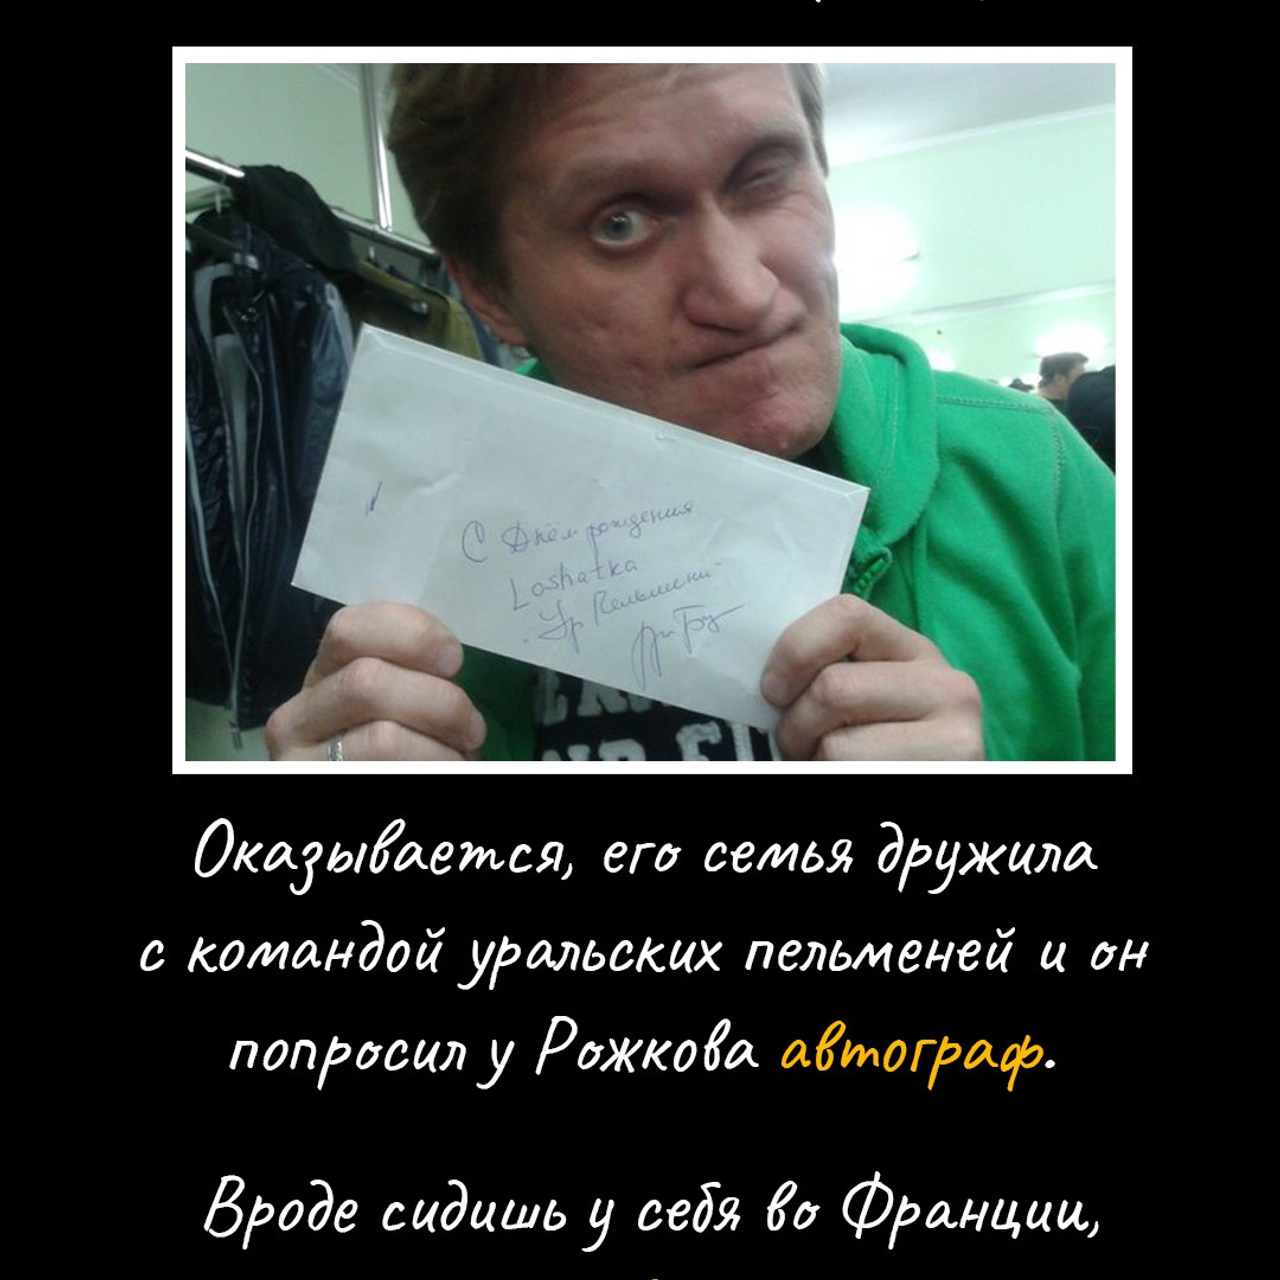 С Днём рождения
Loshatka
Ур Пельмени
Оказывается, его семья дружила
с командой уральских пельменей и он
попросил у Рожкова автограф.
Вроде сидишь у себя во Франции,